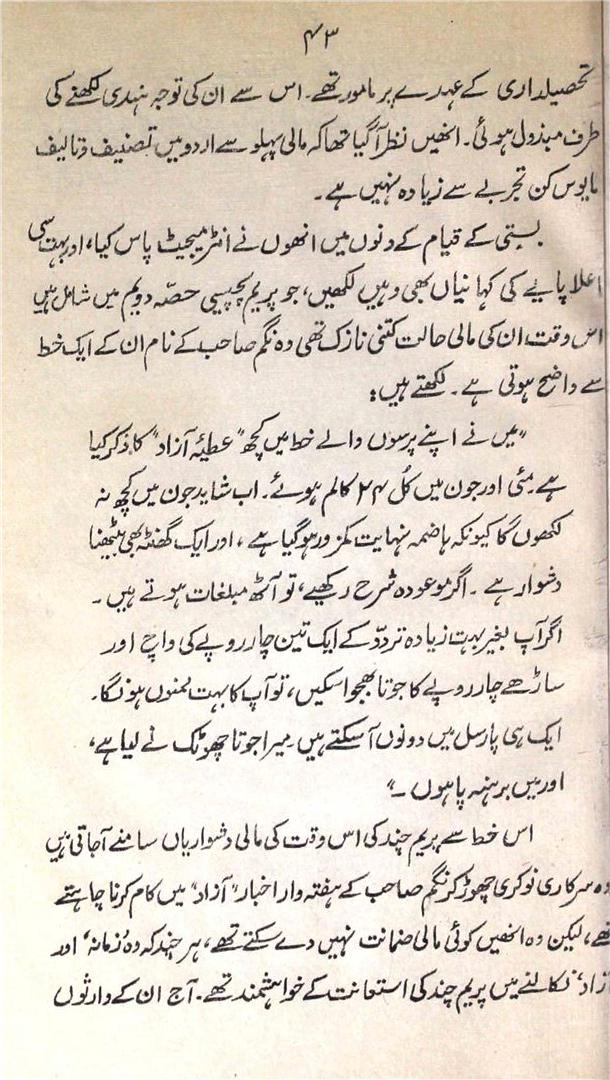 ۴۳
تحصیلداری کے عہدے پر مامور تھے۔ اس سے ان کی توجہ ہندی لکھنے کی
طرف مبذول ہوئی۔ انھیں نظر آ گیا تھا کہ مالی پہلو سے اردو میں تصنیف و تالیف
مایوس کن تجربے سے زیادہ نہیں ہے۔
بستی کے قیام کے دنوں میں انھوں نے انٹرمیجیٹ پاس کیا، اور بہت سی
اعلا پایے کی کہانیاں بھی وہیں لکھیں، جو پریم پچیسی حصّہ دویم میں شامل ہیں
اس وقت ان کی مالی حالت کتنی نازک تھی وہ نگم صاحب کے نام ان کے ایک خط
سے واضح ہوتی ہے۔ لکھتے ہیں:
"میں نے اپنے پرسوں والے خط میں کچھ "عطیۂ آزاد" کا ذکر کیا
ہے۔ مئی اور جون میں کُل ۲۴ کالم ہوئے۔ اب شاید جون میں کچھ نہ
لکھوں گا کیونکہ ہاضمہ نہایت کمزور ہو گیا ہے، اور ایک گھنٹہ بھی بیٹھنا
دشوار ہے۔ اگر موعودہ شرح رکھیے، تو آٹھ مبلغات ہوتے ہیں۔
اگر آپ بغیر بہت زیادہ تردّد کے ایک تین چار روپے کی واچ اور
ساڑھے چار روپے کا جوتا بھجوا سکیں، تو آپ کا بہت ممنوں ہوں گا۔
ایک ہی پارسل میں دونوں آ سکتے ہیں۔ میرا جوتا چھوٹک نے لیا ہے،
اور میں برہنہ پا ہوں۔"
اس خط سے پریم چند کی اس وقت کی مالی دشواریاں سامنے آ جاتی ہیں
وہ سرکاری نوکری چھوڑ کر نگم صاحب کے ہفتہ وار اخبار "آزاد" میں کام کرنا چاہتے
تھے، لیکن وہ انھیں کوئی مالی ضمانت نہیں دے سکتے تھے، ہر چند کہ وہ 'زمانہ' اور
آزاد' نکالنے میں پریم چند کی استعانت کے خواہشمند تھے۔ آج ان کے وارثوں